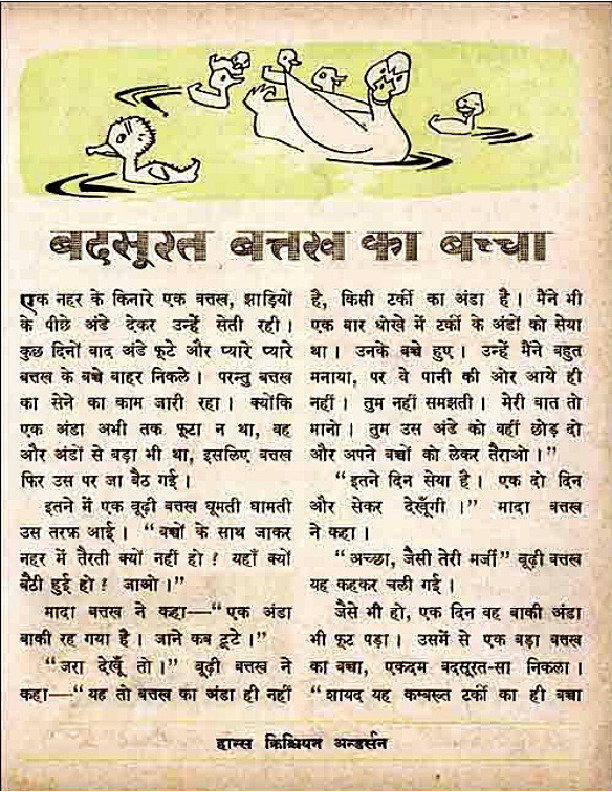 बदसूरत बत्तख का बच्चा
एक नहर के किनारे एक बत्तख, झाड़ियों
के पीछे अंडे देकर उन्हें सेती रही।
कुछ दिनों बाद अंडे फूटे और प्यारे प्यारे
बत्तख के बच्चे बाहर निकले। परन्तु बत्तख
का सेने का काम जारी रहा। क्योंकि
एक अंडा अभी तक फूटा न था, वह
और अंडों से बड़ा भी था, इसलिए बत्तख
फिर उस पर जा बैठ गई।
इतने में एक बूढ़ी बत्तख घूमती घामती
उस तरफ़ आई। “बच्चों के साथ जाकर
नहर में तैरती क्यों नहीं हो? यहाँ क्यों
बैठी हुई हो? जाओ।”
मादा बत्तख ने कहा—“एक अंडा
बाकी रह गया है। जाने कब टूटे।”
“जरा देखूँ तो।” बूढ़ी बत्तख ने
कहा—“यह तो बत्तख का अंडा ही नहीं
है, किसी टर्की का अंडा है। मैंने भी
एक बार धोखे में टर्की के अंडों को सेया
था। उनके बच्चे हुए। उन्हें मैंने बहुत
मनाया, पर वे पानी की ओर आये ही
नहीं। तुम नहीं समझती। मेरी बात तो
मानो। तुम उस अंडे को वहीं छोड़ दो
और अपने बच्चों को लेकर तैराओ।”
“इतने दिन सेया है। एक दो दिन
और सेकर देखूँगी।” मादा बत्तख
ने कहा।
“अच्छा, जैसी तेरी मर्जी” बूढ़ी बत्तख
यह कहकर चली गई।
जैसे भी हो, एक दिन वह बाकी अंडा
भी फूट पड़ा। उसमें से एक बड़ा बत्तख
का बच्चा, एकदम बदसूरत-सा निकला।
“शायद यह कम्बख्त टर्की का ही बच्चा
हान्स क्रिश्चियन अन्डर्सन